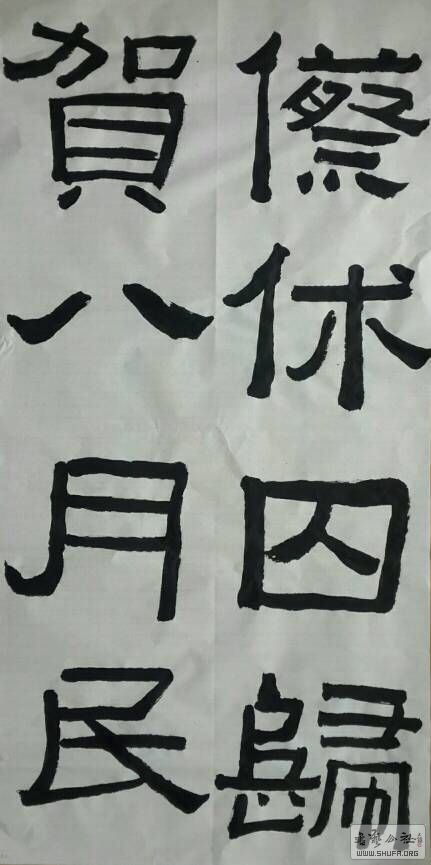 傺休囚歸
賀八月民
書藝公社
WWW.SHUFA.ORG